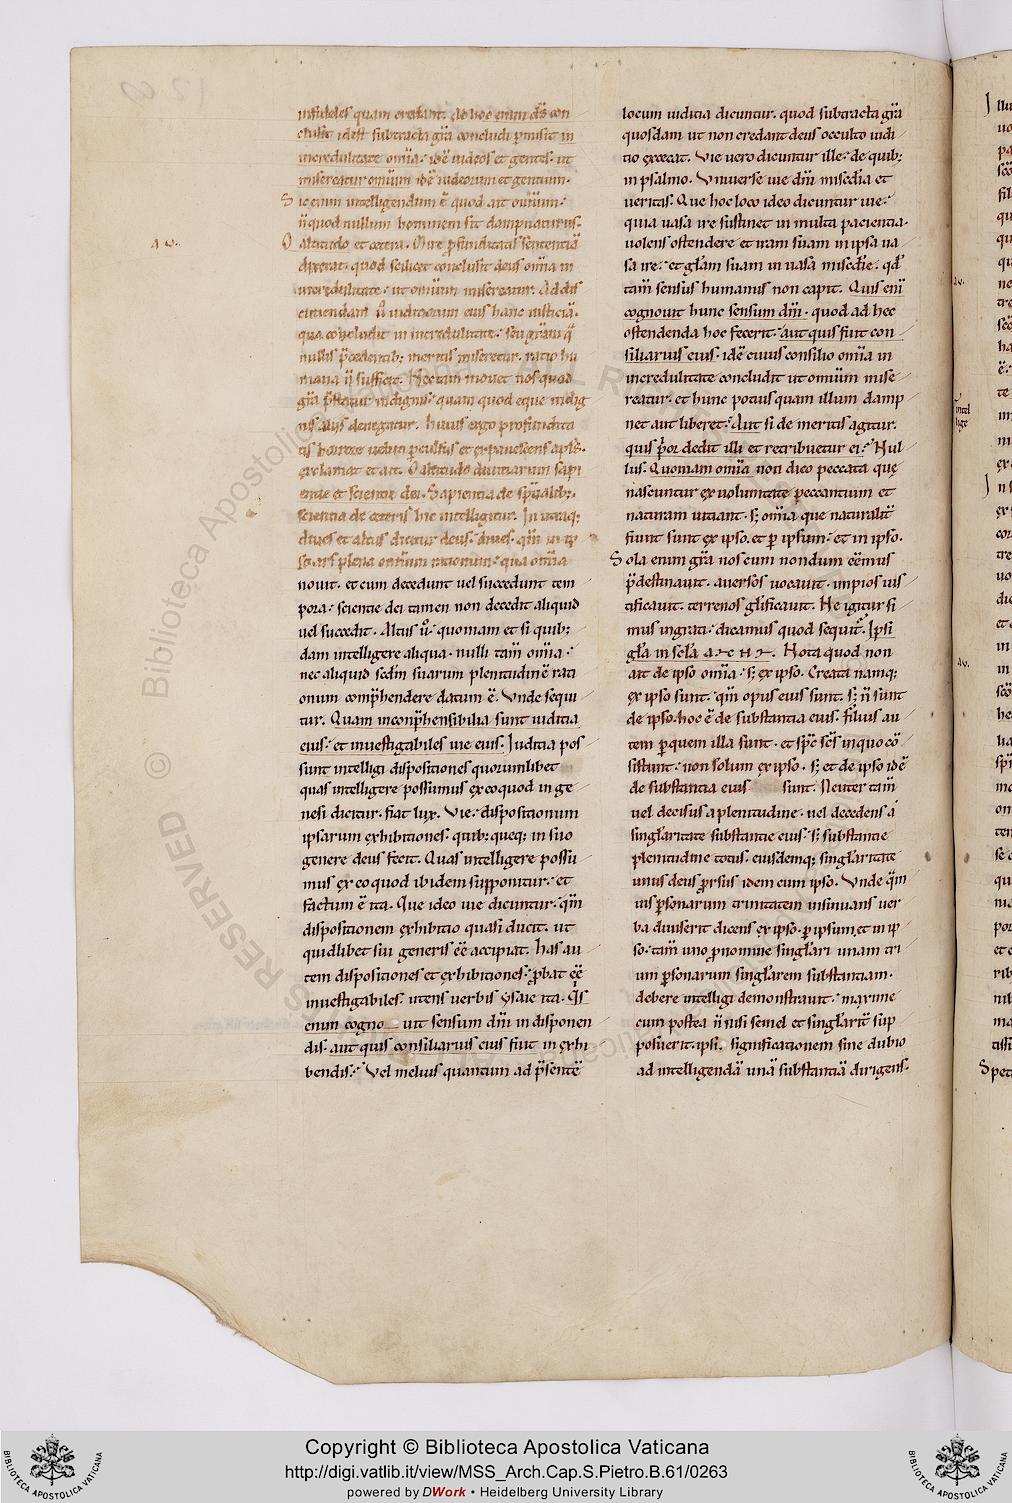 infideles quam erant. Ad hoc enim ds con
clusit idest subtracta gra concludi pmisit in
incredulitate omia. idē iudeos et gentes. ut
misereatur omium idē iudeorum et gentium.
Sic enim intelligendum ē quod ait omium.
n quod nullum hominem sit dampnaturus.
O altitudo et cetera. profunditatis sententiā
dixerat. quod scilicet conclusit deus omia in
incredulitate. ut omium misereatur. Ad dis
cutiendam u iudiciorum eius hanc iusticiā.
qua concludit in incredulitate. seu gram q
nullis pcedentib; meritis miseretur. ratio hu
mana n sufficit. Nec tam movet nos quod
gra pstetur indignis. quam quod eque indig
nis aliis denegatur. huius ergo profundita
tis et expavescens apls.
exclamat et ait. O altitudo divitiarum sapi
entie et scientie dei. Sapientia de spualib;.
scientia de ceteris hic intelligitur. In utraq;
dives et altus dicitur deus. dives. qm in ip
so ars plena omium rationum. qua omia
novit. et cum decedunt vel succedunt tem
pora. scientie dei tamen non decedit aliquid
vel succedit. Altus u. quoniam et si quib;
dam intelligere aliqua. nulli tam omia.
nec aliquid scdm suarum plenitudinē rati
onum comphendere datum ē. Unde sequi
tur. Quam incomphensibilia sunt iuditia
eius. et investigabiles vie eius. Iuditia pos
sunt intelligi dispositiones quorumlibet
quas intelligere possumus ex eo quod in ge
nesi dicitur. fiat lux. Vie. dispositionum
ipsarum exhibitiones. quib; queq; in suo
genere deus fecit. Quas intelligere possu
mus ex eo quod ibidem supponitur. et
factum ē ita. Que ideo vie dicuntur. qm
dispositionem exhibitio quasi ducit. ut
quidlibet sui generis eē accipiat. has au
tem dispositiones et exhibitiones. pbat eē
investigabiles. utens verbis ysaie ita. Qis
enim cogno vit sensum dni in disponen
dis. aut quis consiliarius eius fuit in exhi
bendis. Vel melius quantum ad psentē
locum iuditia dicuntur. quod subtracta gra
quosdam ut non credant deus occulto iudi
tio excecat. Vie vero dicuntur ille. de quib;
in psalmo. Universe vie dni miscdia et
veritas. Que hoc loco ideo dicuntur vie.
quia vasa ire sustinet in multa pacientia.
volens ostendere et iram suam in ipsa va
sa ire. et glam suam in vasa miscdie. qd
tam sensus humanus non capit. Quis eni
cognovit hunc sensum dni. quod ad hec
ostendenda hoc fecerit. aut quis fuit con
siliarius eius. idē cuius consilio omia in
incredulitate concludit ut omium mise
reatur. et hunc potius quam illum damp
net aut liberet. Aut si de meritis agitur.
quis por dedit illi et retribuetur ei. Nul
lus. Quoniam omia non dico peccata que
nascuntur ex voluntate peccantium et
naturam vitiant. s; omia que naturalit
fiunt sunt ex ipso. et p ipsum. et in ipso.
Sola enim gra nos cum nondum eēmus
pdestinavit. aversos vocavit. impios ius
tificavit. terrenos glificavit. Ne igitur si
mus ingrati. dicamus quod sequit. Ipsi
gla in scla Nota quod non
ait de ipso omia. s; ex ipso. Creata namq;
ex ipso sunt. qm opus eius sunt. s; n sunt
de ipso. hoc ē de substantia eius. filius au
tem p quem illa sunt. et spc scs in quo cō
sistunt. non solum ex ipso. s; et de ipso idē
de substantia eius sunt. Neuter tam
vel decisus a plenitudine. vel decedens a
singlaritate substantie eius. s; substantie
plenitudine totus. eiusdemq; singlaritate
unus deus prsus idem cum ipso. Unde qm
vis psonarum trinitatem insinuans ver
ba diviserit dicens ex ipso. p ipsum. et in ip
so. tam uno pnomine singlari unam tri
um psonarum singlarem substantiam.
debere intelligi demonstravit. maxime
cum postea n nisi semel et singlarit sup
posuerit. ipsi. significationem sine dubio
ad intelligendā unā substantiā dirigens.
intel
lige
Spec
Copyright © Biblioteca Apostolica Vaticana
http://digi.vatlib.it/view/MSS_Arch.Cap.S.Pietro.B.61/0263
powered by DWork • Heidelberg University Library
BIBLIOTECA APOSTOLICA VATICANA
BIBLIOTECA APOSTOLICA VATICANA